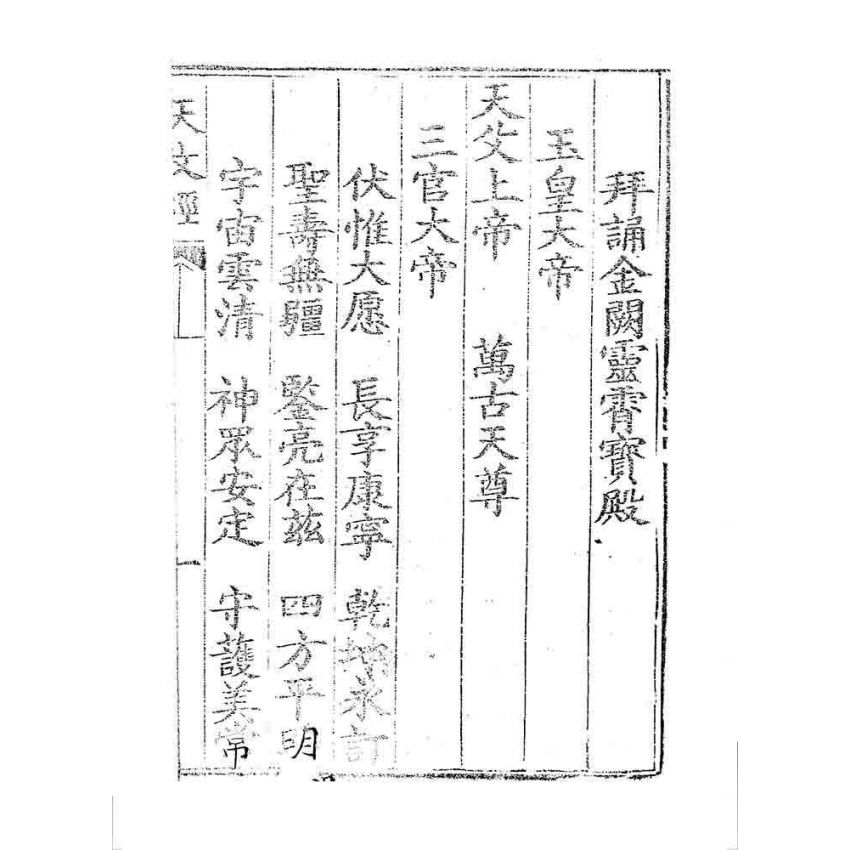 拜誦金闕靈霄寶殿
玉皇大帝
天父上帝 萬古天尊
三官大帝
伏惟大愿 長享康寧 乾坤永訂
聖壽無疆 鑒亮在茲 四方平明
宇宙雲清 神眾安定 守護美常
天文經 一